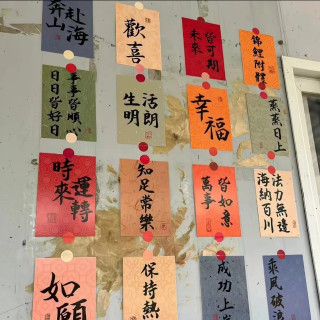 奔山
赴海
歡喜
未來
皆可期
錦鯉附體
日日皆好日
事事皆順心
生活
明朗
幸福
蒸蒸日上
時來
運轉
知足常樂
萬事
皆如意
海納百川
法力無邊
如願
保持熱
成功上
乘風破浪